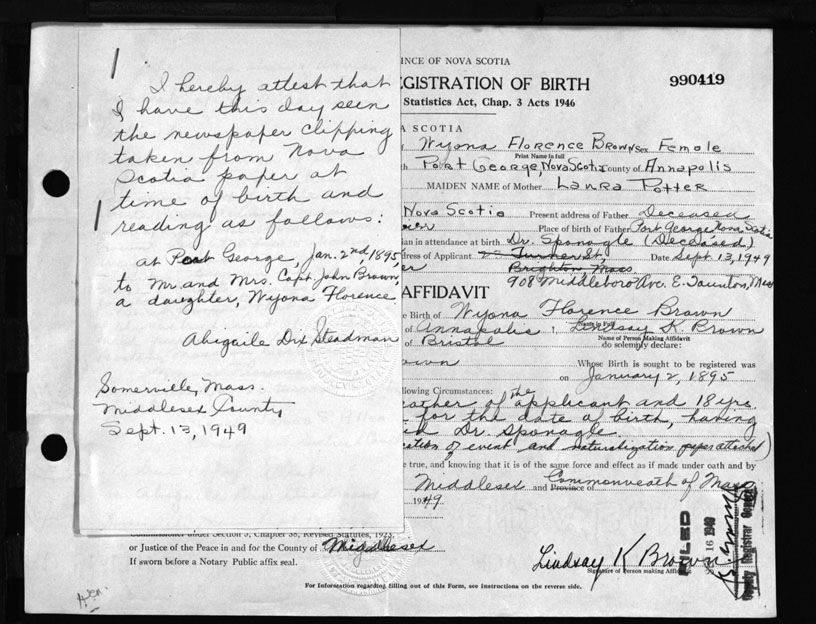 I hereby attest that
I have this day seen
the newspaper clipping
taken from Nova
Scotia paper at
time of birth and
reading as follows:
at Port George, Jan. 2nd 1895
to Mr and Mrs. Capt John Brown,
a daughter, Wyona Florence
Abigaile Dix Steadman
Somerville, Mass.
Middlesex County
Sept. 13, 1949
INCE OF NOVA SCOTIA
EGISTRATION OF BIRTH
990419
Statistics Act, Chap. 3 Acts 1946
A SCOTIA
Wyona Florence Brown Sex Female
Print Name in full
Port George, Nova Scotia County of Annapolis
MAIDEN NAME of Mother Laura Potter
Nova Scotia Present address of Father Deceased
Place of Birth of Father Port George Nova Scotia
ian in attendance at birth Dr. Sponagle (Deceased)
dress of Applicant Turner St, Date Sept. 13, 1949
Brighton Mass.
908 Middleboro Ave. E. Taunton, Mass
AFFIDAVIT
e Birth of Wyona Florence Brown
Name in Full
of Annapolis I, Lindsay K Brown
Name of Person Making Affidavit
of Bristol do solemnly declare:
own Whose Birth is sought to be registered was
on January 2, 1895
llowing Circumstances:
the
other of applicant and 18 yrs
for the date of birth, having
Dr. Sponagle
ation of event and naturalization paper attached)
e true, and knowing that it is of the same force and effect as if made under oath and by
Middlesex and Province of Commonweath of Mass
1949.
Commissioner under Section 5, Chapter 38, Revised Statutes, 1923,
or Justice of the Peace in and for the County of Middlesex
If sworn before a Notary Public affix seal.
Lindsay K Brown
Signature of Person making Affidavit
FILED
16 1949
Deputy Registrar General
For Information regarding filling out of this Form, see instructions on the reverse side.